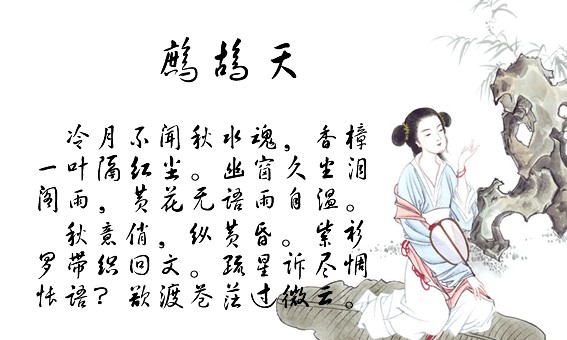 鹧鸪天
冷月不闻秋水魂，香樟
一叶隔红尘。幽窗久坐泪
阁雨，黄花无语雨自温。
秋意俏，纵黄昏。紫衫
罗带织回文。疏星诉尽惆
怅语？欲渡苍茫过微云。